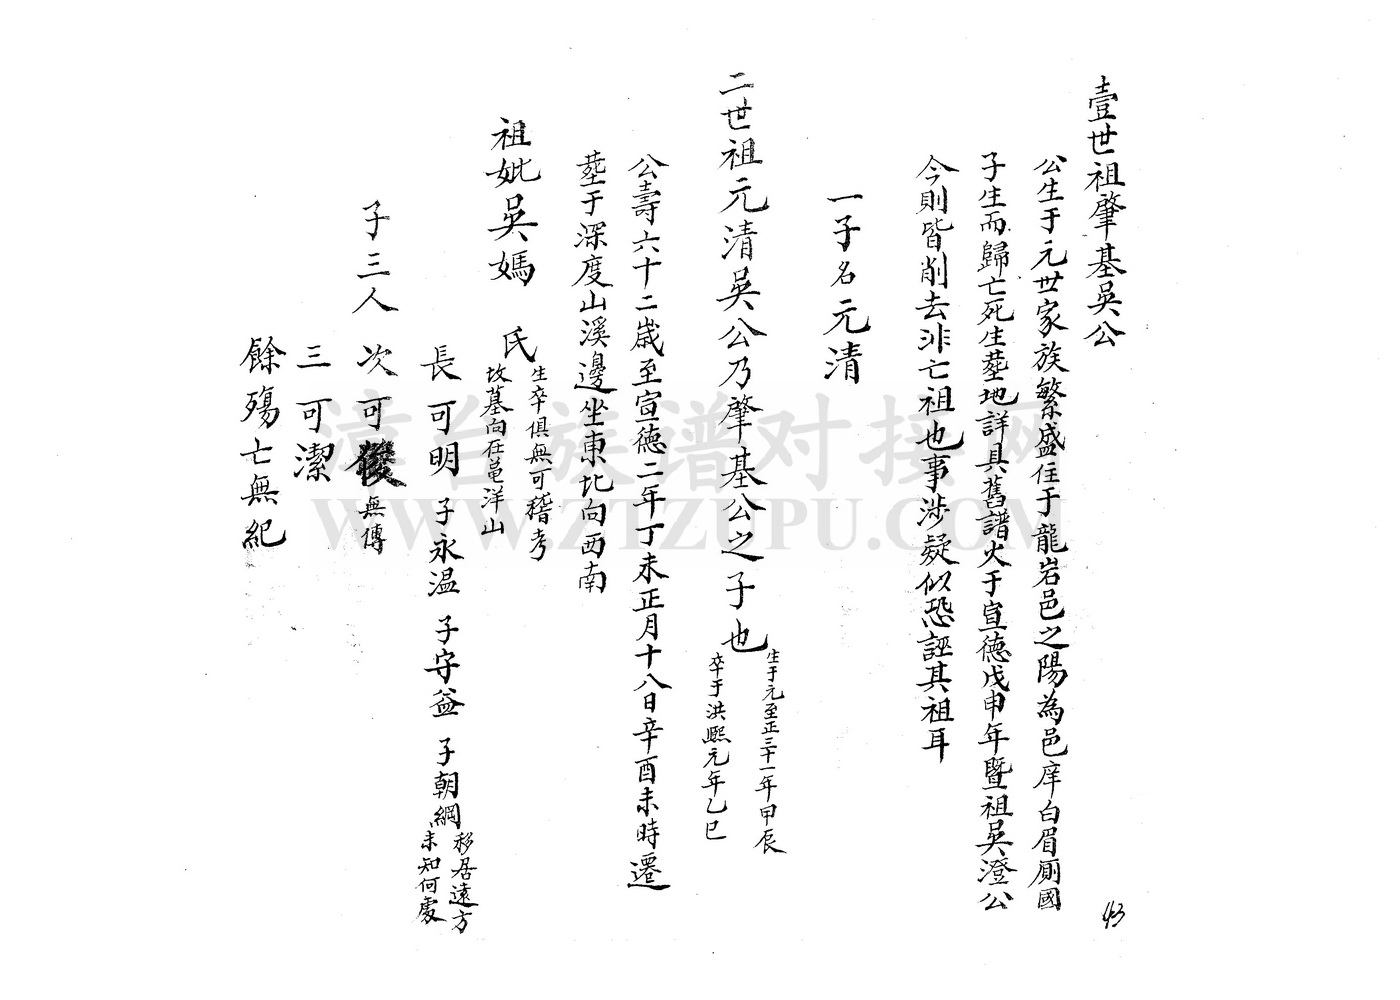 壹世祖肇基吳公
公生于元世家族繁盛住于龍岩邑之陽為邑庠白眉廁國
子生而歸亡死生塟地詳具舊譜火于宣德戊申年暨祖吳澄公
今則皆削去非亡祖也事涉疑似恐誣其祖耳
一子名元清
二世祖元清吳公乃肇基公之子也
生于元至正三十一年甲辰
卒于洪熙元年乙巳
公壽六十二歲至宣德二年丁未正月十八日辛酉未時遷
塟于深度山溪邊坐東北向西南
祖妣吳媽 氏
生卒俱無可稽考
故墓向在黽洋山
子三人
長可明 子永温 子守益 子朝綱
移居遠方
未知何處
次可俊 無傳
三可潔
餘殤亡無紀
43
漳台族谱对接网
WWW.ZTZUPU.COM